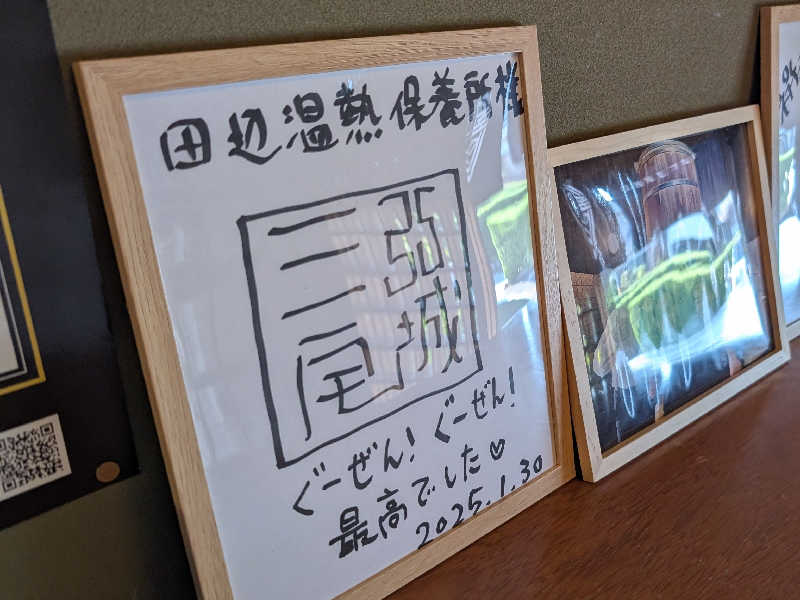 田辺温熱保養所様
城
ぐーぜん! ぐーぜん!
最高でした♡
2025.1.30